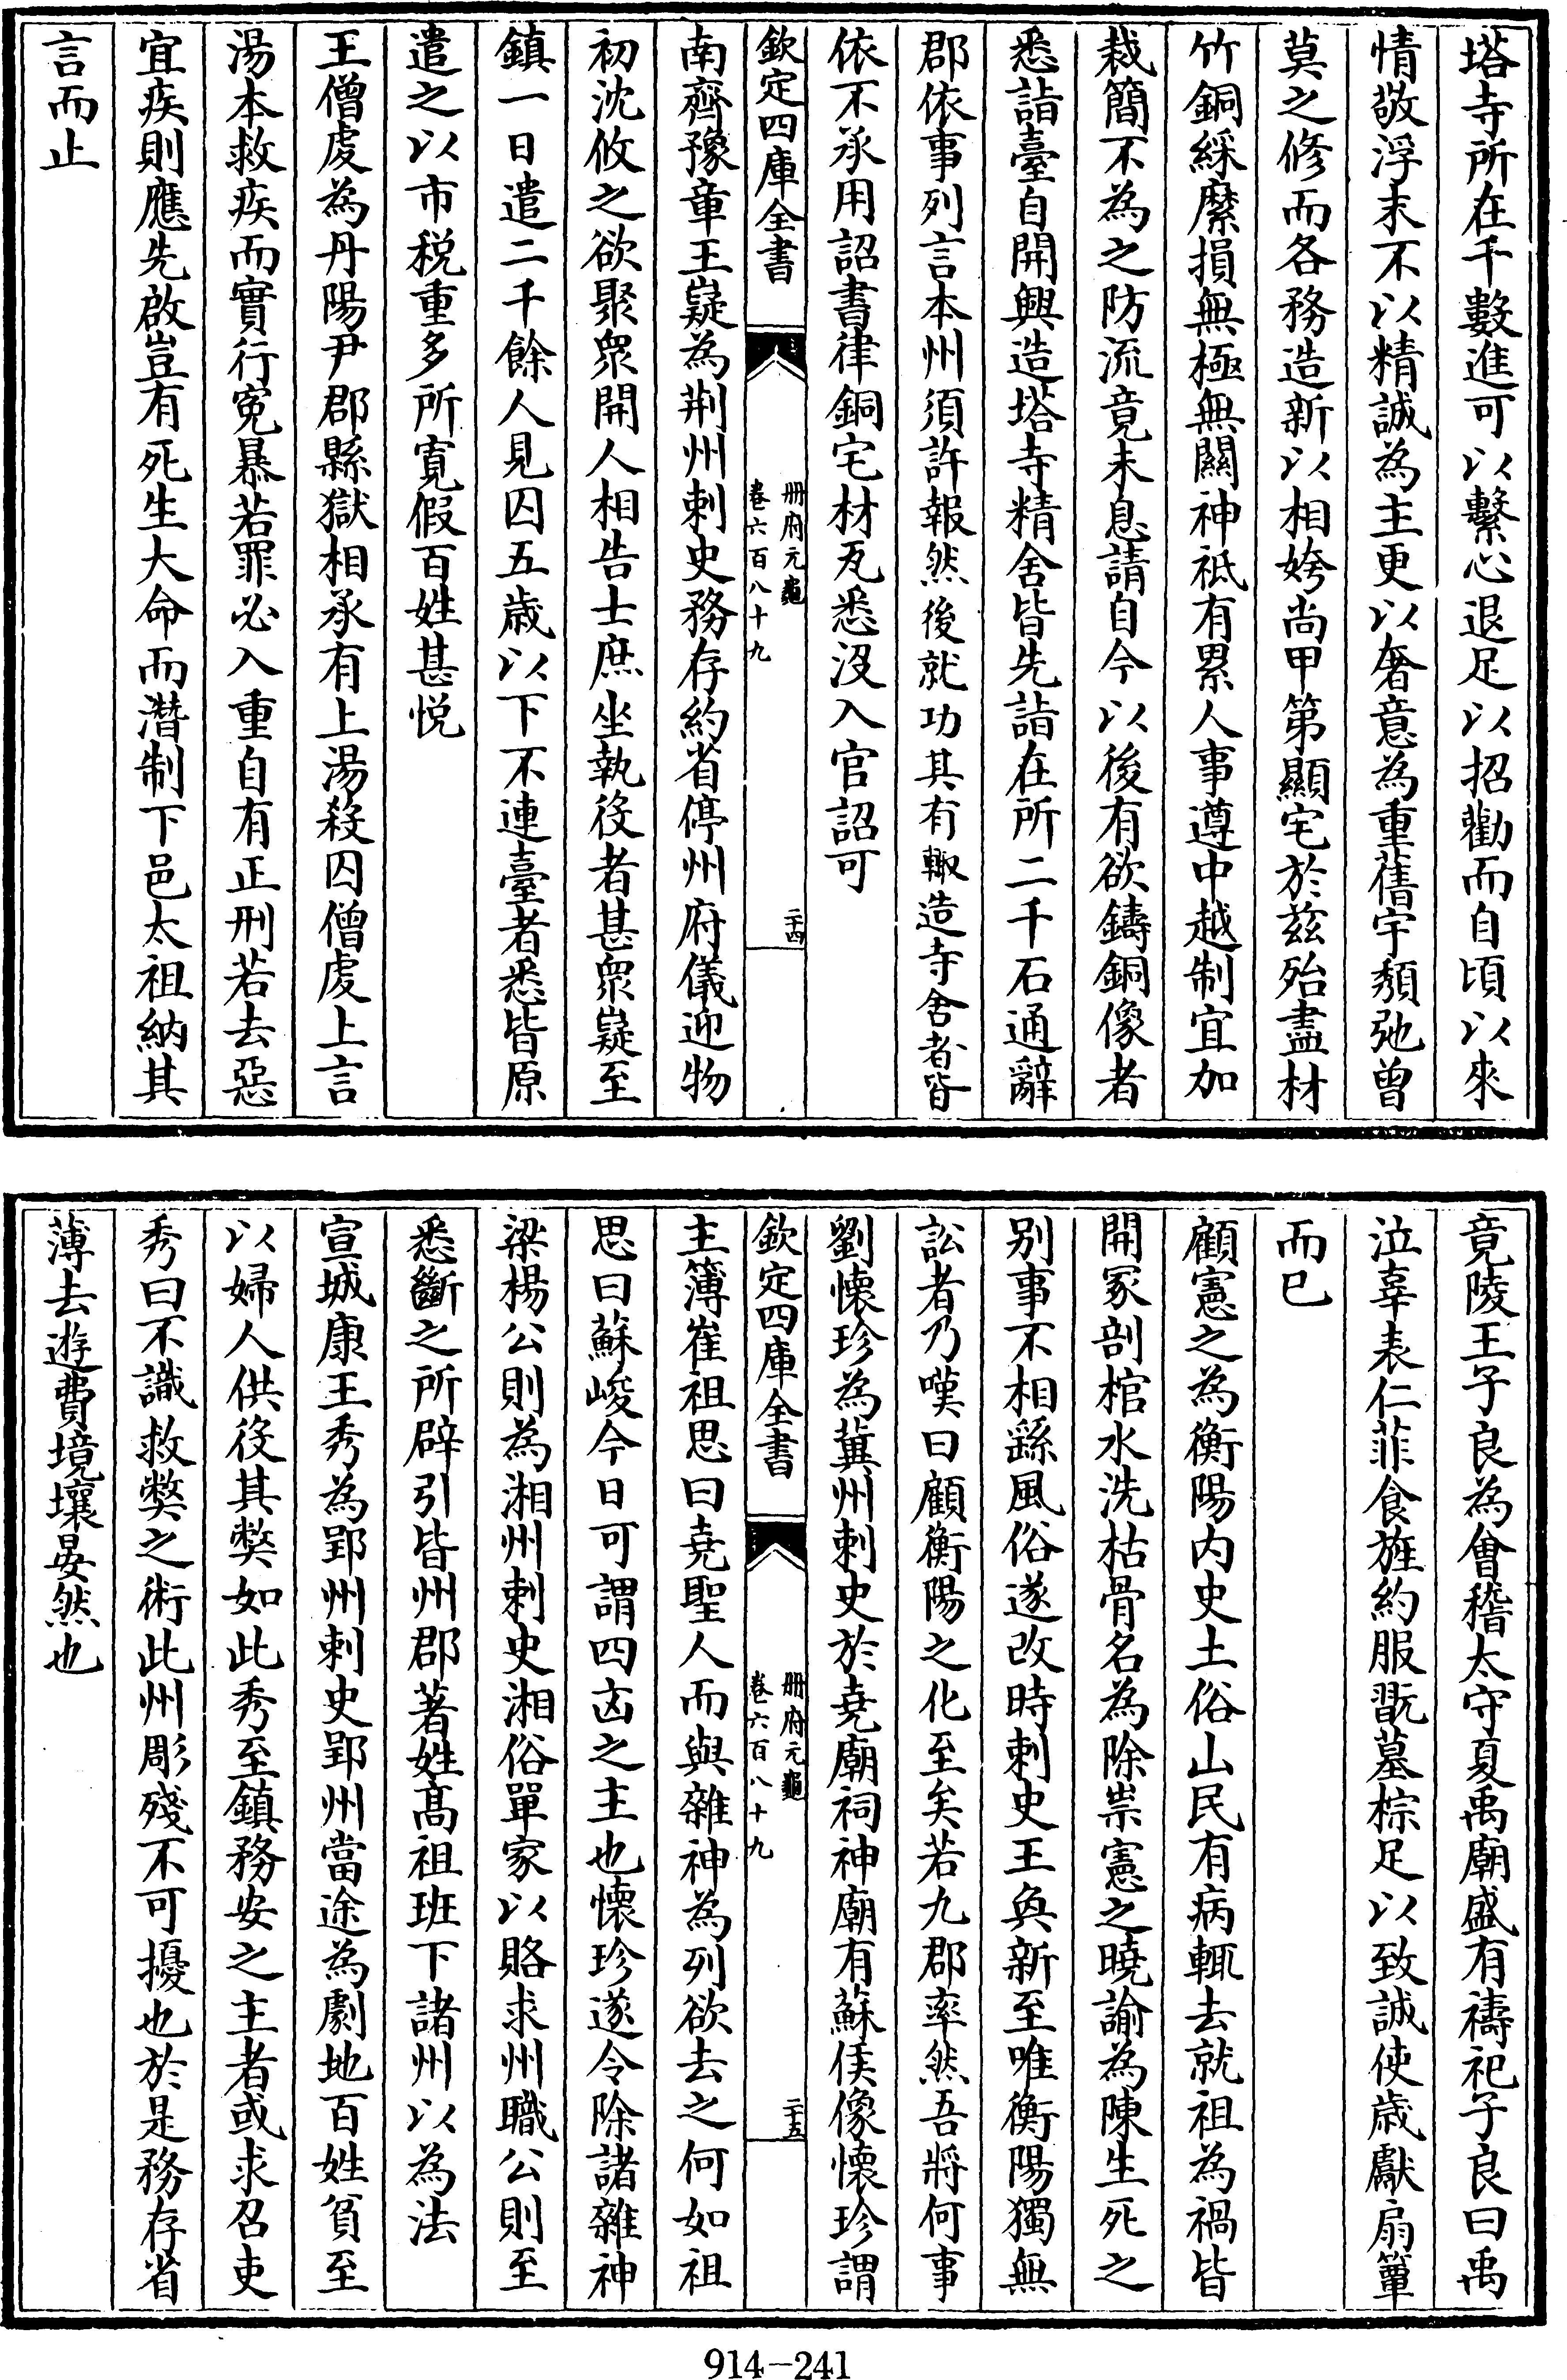 塔寺所在千數進可以繫心退足以招勸而自頃以來
情敬浮末不以精誠為主更以奢意為重舊宇頽弛曾
莫之修而各務造新以相姱尚甲第顯宅於兹殆盡材
竹銅綵縻損無極無關神祇有累人事遵中越制宜加
裁簡不為之防流竟未息請自今以後有欲鑄銅像者
悉詣臺自開興造塔寺精舍皆先詣在所二千石通辭
郡依事列言本州須許報然後就功其有輙造寺舍者皆
依不承用詔書律銅宅材瓦悉沒入官詔可
欽定四庫全書
册府元龜
卷六百八十九
二十四
南齊豫章王嶷為荆州刺史務存約省停州府儀迎物
初沈攸之欲聚衆開人相告士庶坐執役者甚衆嶷至
鎮一日遣二千餘人見囚五歲以下不連臺者悉皆原
遣之以市税重多所寛假百姓甚悦
王僧虔為丹陽尹郡縣獄相承有上湯殺囚僧虔上言
湯本救疾而實行寃暴若罪必入重自有正刑若去惡
宜疾則應先啟豈有死生大命而潛制下邑太祖納其
言而止
竟陵王子良為會稽太守夏禹廟盛有禱祀子良曰禹
泣辜表仁菲食旌約服翫墓棕足以致誠使歲獻扇簟
而已
顧憲之為衡陽内史土俗山民有病輒去就祖為禍皆
開冢剖棺水洗枯骨名為除祟憲之曉諭為陳生死之
别事不相繇風俗遂改時刺史王奐新至唯衡陽獨無
訟者乃嘆曰顧衡陽之化至矣若九郡率然吾將何事
劉懷珍為冀州刺史於堯廟祠神廟有蘇侯像懷珍謂
欽定四庫全書
册府元龜
卷六百八十九
二十五
主簿崔祖思曰堯聖人而與雜神為列欲去之何如祖
思曰蘇峻今日可謂四凶之主也懷珍遂令除諸雜神
梁楊公則為湘州刺史湘俗單家以賂求州職公則至
悉斷之所辟引皆州郡著姓高祖班下諸州以為法
宣城康王秀為郢州刺史郢州當途為劇地百姓貧至
以婦人供役其弊如此秀至鎮務安之主者或求召吏
秀曰不識救弊之術此州彫殘不可擾也於是務存省
薄去遊費境壤晏然也
914-241